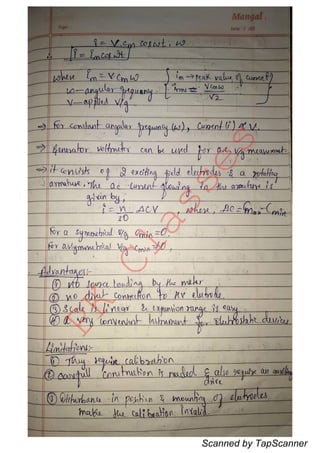 Mangal
Page :
Date : / /20
i = V. Cm cosωt. ω
∴ i = Im cosωt
where Im = V Cm ω
im → peak value of current
Irms = VCmω / √2
ω — angular frequency
V — applied V/g
→ For constant angular frequency (ω), Current (i) ∝ V.
→ Generator voltmeter can be used for a.c. V/g measurement
→ it consists of 2 exciting field electrodes & a rotating
armature. The a.c current flowing in the armature is
given by,
i = n/30 ΔCV where, ΔC = Cmax - Cmin
For a symmetrical V/g Cmin = 0
For asymmetrical V/g Cmin ≠ 0,
Advantages:-
① NO source loading by the meter
② no direct connection to HV eletrode.
③ Scale is linear & expansion range is easy
④ A very convenient Instrument for Electrostatic devices
Limitations:-
① They require calibration
② Carefull construction is needed & also require an
drive
③ Disturbance in position & mounting of eletrodes
make the calibration Invalid.
Classes
Scanned by TapScanner